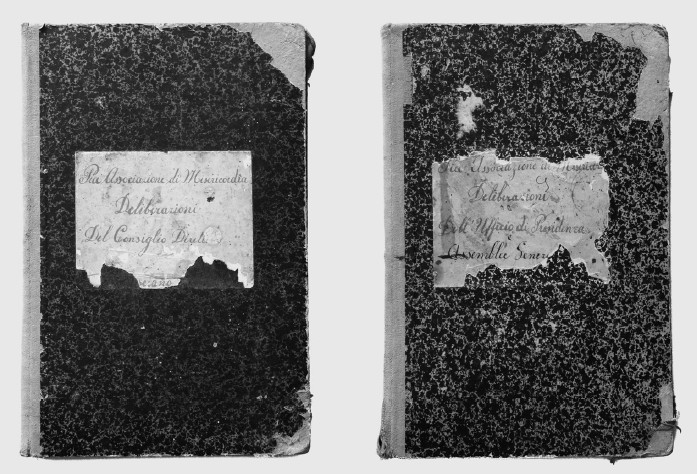 Pia Associazione di Misericordia
Deliberazioni
Del Consiglio
Pia Associazione di
Deliberazioni
Dell' Ufficio di Presidenza
Assemblee